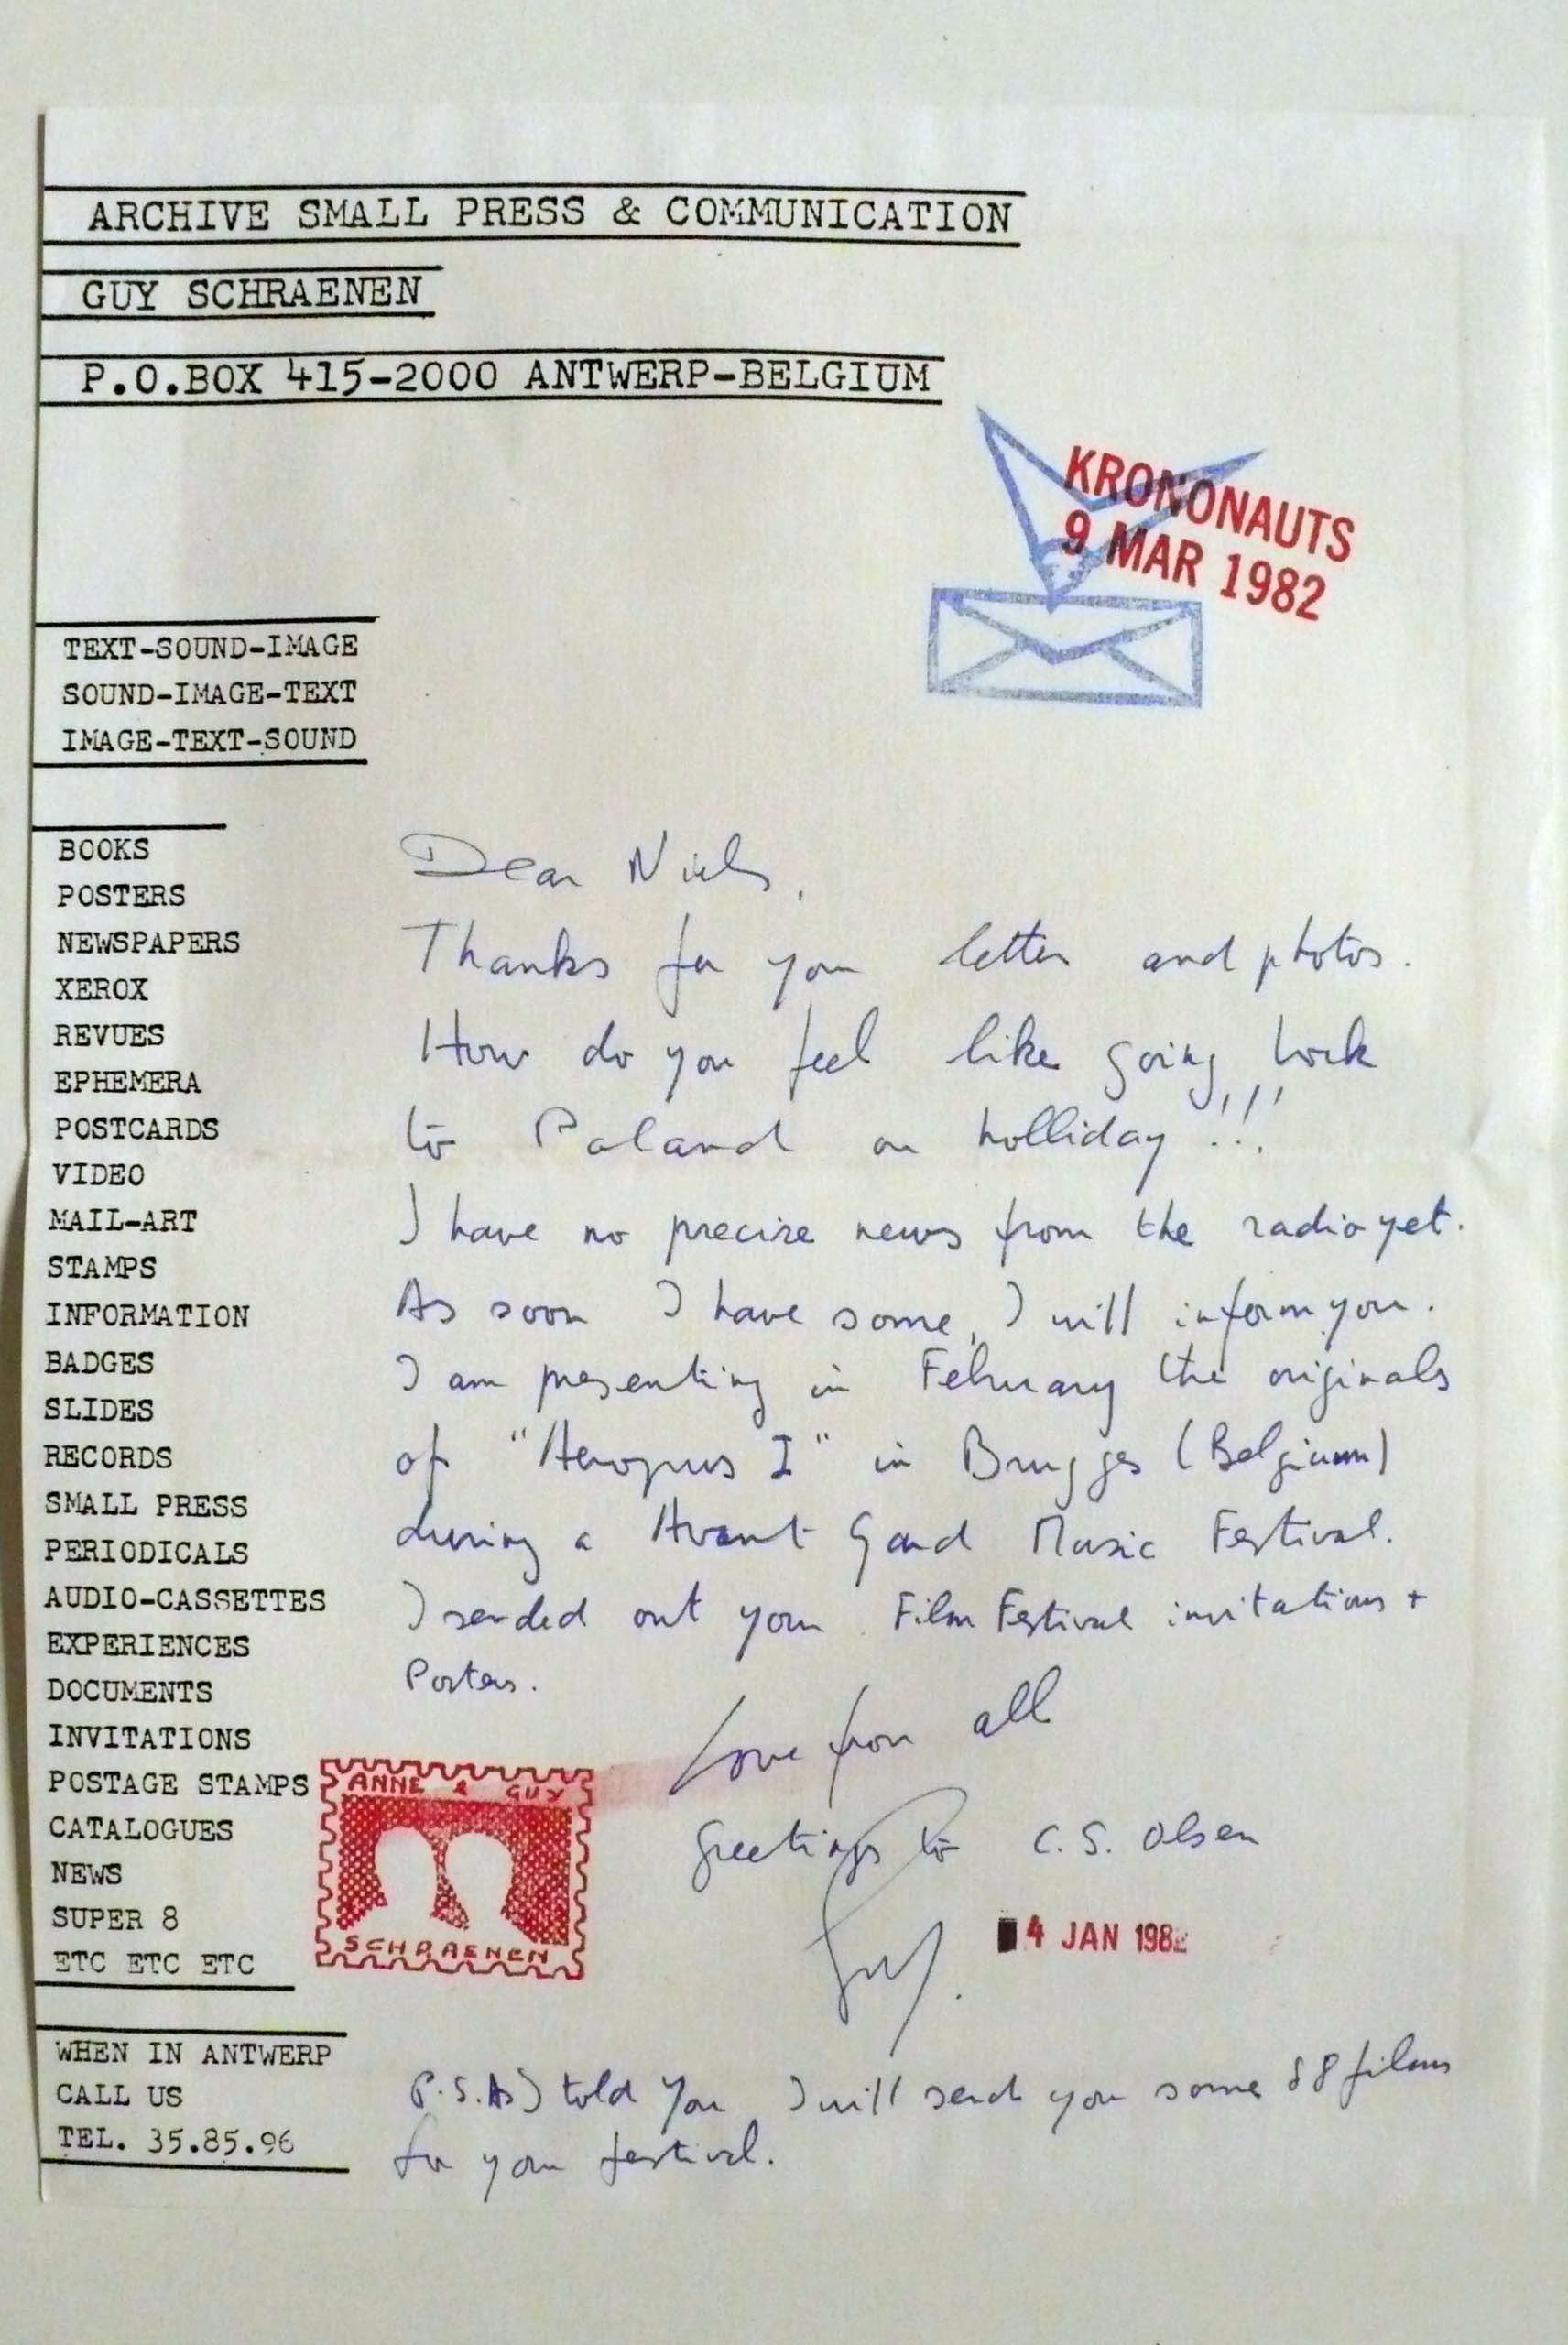 ARCHIVE SMALL PRESS & COMMUNICATION
GUY SCHRAENEN
P.O.BOX 415-2000 ANTWERP-BELGIUM
KRONONAUTS
9 MAR 1982
TEXT-SOUND-IMAGE
SOUND-IMAGE-TEXT
IMAGE-TEXT-SOUND
BOOKS
POSTERS
NEWSPAPERS
XEROX
REVUES
EPHEMERA
POSTCARDS
VIDEO
MAIL-ART
STAMPS
INFORMATION
BADGES
SLIDES
RECORDS
SMALL PRESS
PERIODICALS
AUDIO-CASSETTES
EXPERIENCES
DOCUMENTS
INVITATIONS
POSTAGE STAMPS
CATALOGUES
NEWS
SUPER 8
ETC ETC ETC
WHEN IN ANTWERP
CALL US
TEL. 35.85.96
Dear Niels,
Thanks for your letter and photos.
How do you feel like going back
to Poland on holliday!!!
I have no precise news from the radio yet.
As soon I have some, I will inform you.
I am presenting in February the originals
of " I" in Brugges (Belgium)
during a Avant Gard Music Festival.
I sended out your Film Festival invitations +
Posters.
Love from all
Greetings to C.S. Olsen
Guy.
4 JAN 1982
ANNE & GUY
SCHRAENEN
P.S. As I told you I will send you some films
for your festival.